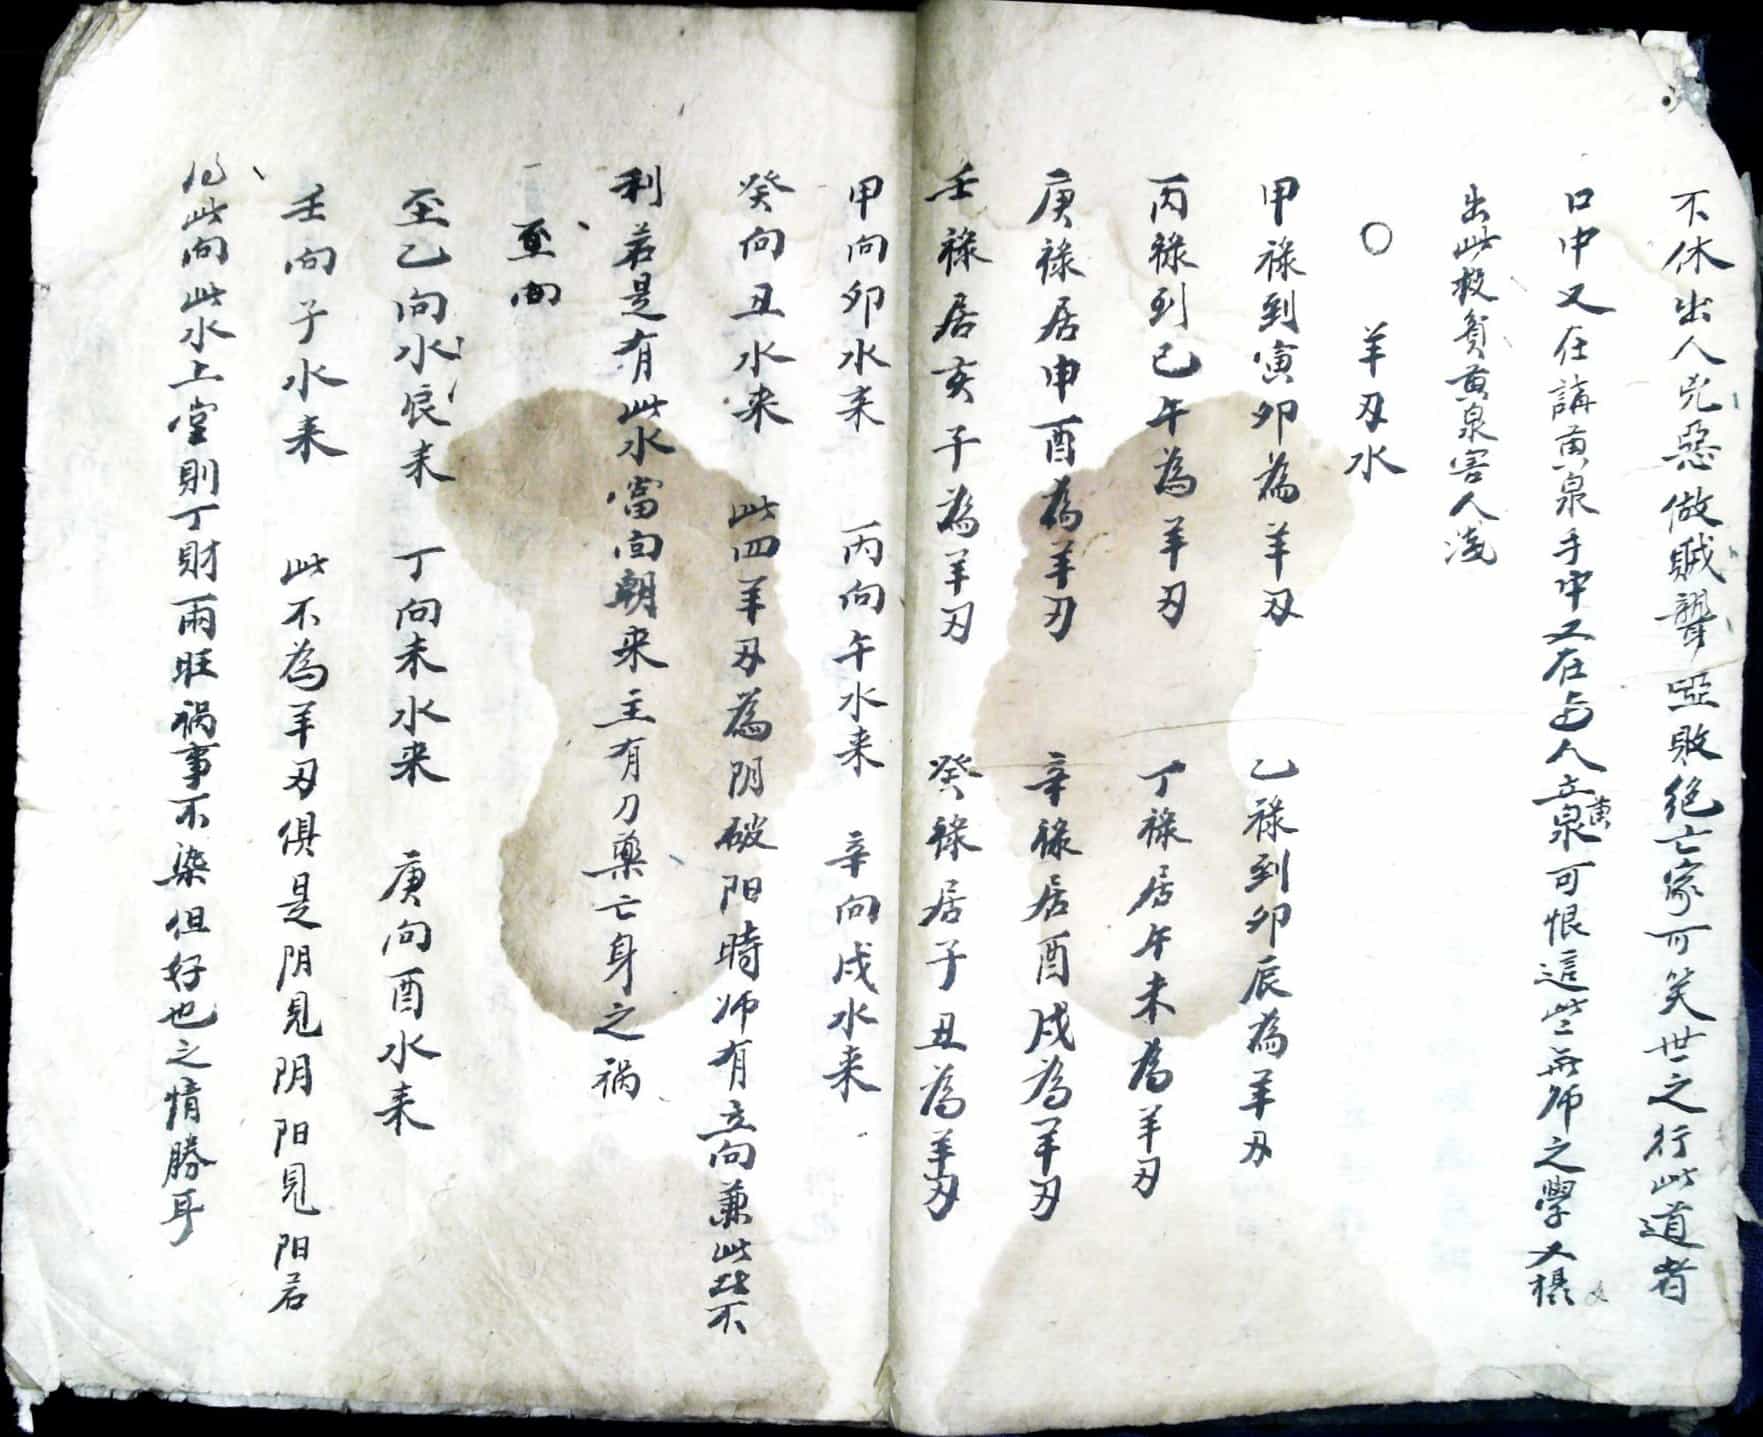 不休出人兇惡做賊聾啞敗絕亡家可笑世之行此道者
口中又在講黄泉手中又在占人立黄泉可恨這些無师之學又
出此殺貧黄泉害人淺
○ 羊刃水
甲祿到寅卯為羊刃 乙祿到卯辰為羊刃
丙祿到巳午為羊刃 丁祿居午未為羊刃
庚祿居申酉為羊刃 辛祿居酉戌為羊刃
壬祿居亥子為羊刃 癸祿居子丑為羊刃
甲向卯水来 丙向午水来 辛向戌水来
癸向丑水来 此四羊刃為阴破阳時师有立向兼此些不
利若是有此水當向朝来主有刀藥亡身之祸
至向
至乙向水辰来 丁向未水来 庚向酉水来
壬向子水来 此不為羊刃俱是阴見阴阳見阳若
此向此水上堂則丁財兩旺祸事不染但好也之情勝耳